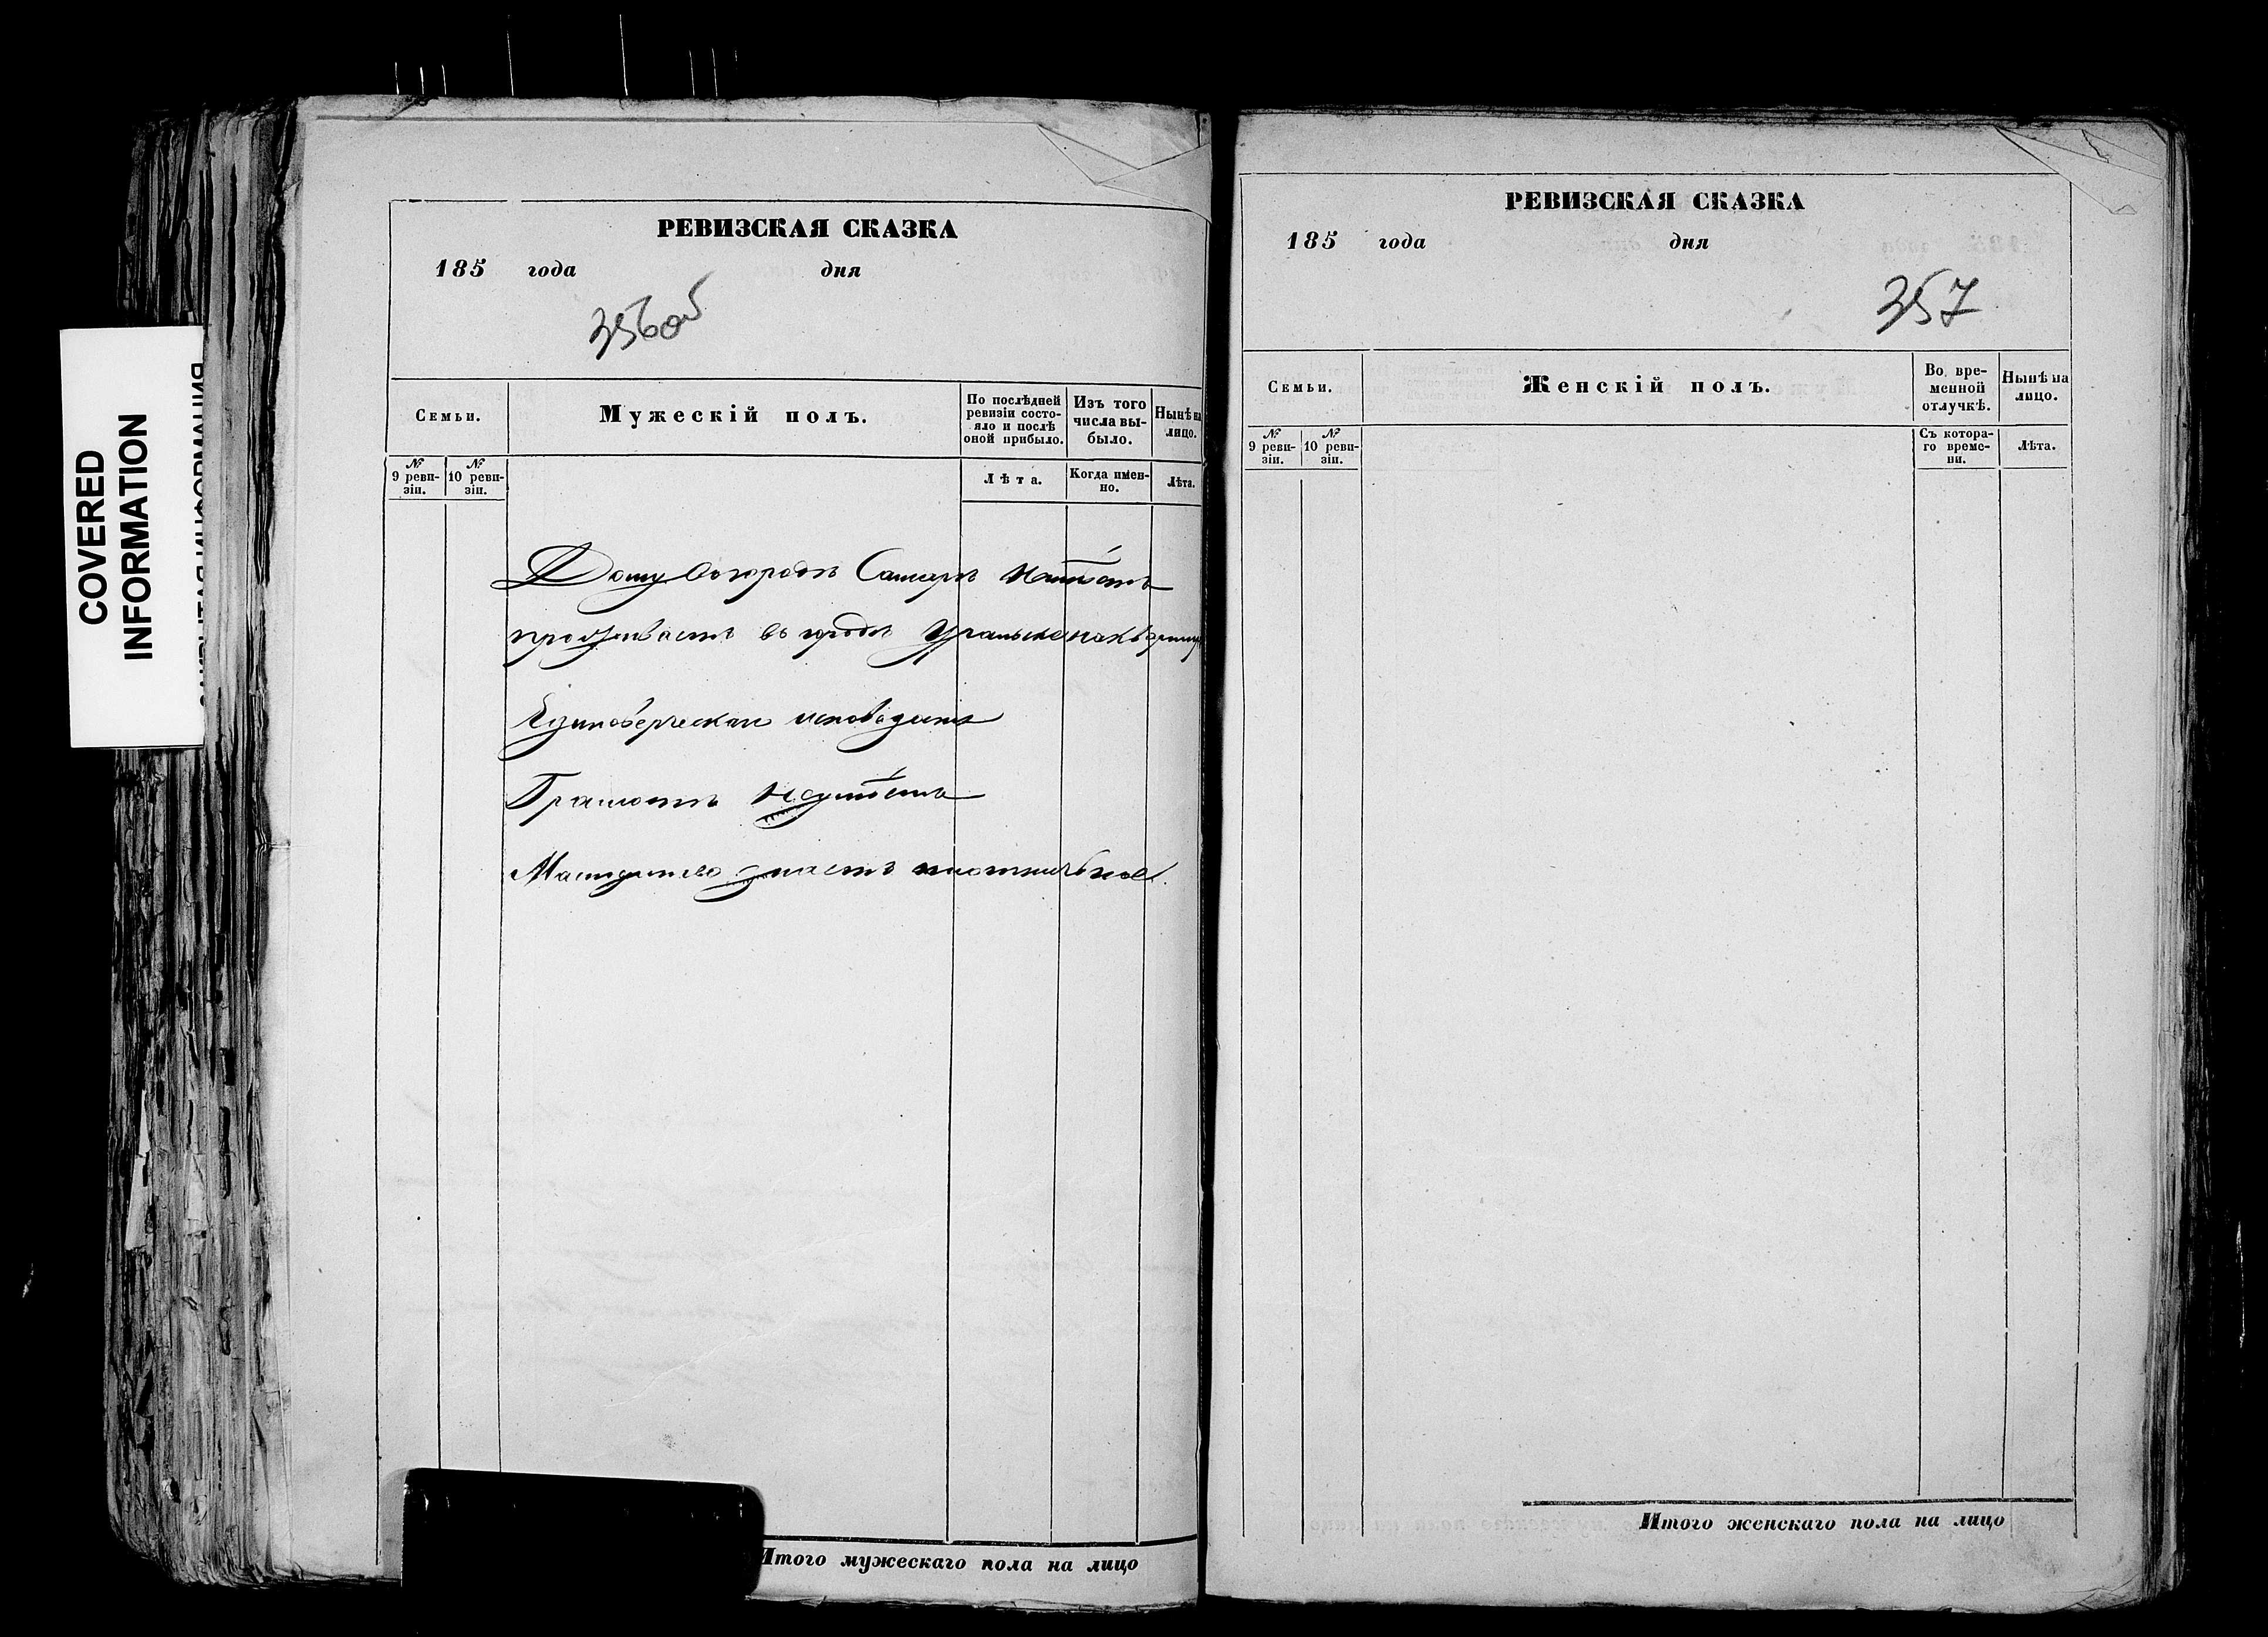 COVERED
INFORMATION
РЕВИЗСКАЯ СКАЗКА
185 года дня
356об
Семьи.
Мужескій полъ.
По послѣдней
ревизіи состо-
яло и послѣ
оной прибыло.
Изъ того
числа вы-
было.
Нынѣ на
лицо.
№
9 реви-
зіи.
№
10 реви-
зіи.
Лѣта.
Когда имен-
но.
Лѣта.
Дому въ городѣ Самарѣ Неимѣетъ
проживаетъ въ городѣ Уральске
Единоверческаго исповеданія
Грамотѣ Неумѣетъ
Мастерство знаетъ плотничное.
Итого мужескаго пола на лицо
РЕВИЗСКАЯ СКАЗКА
185 года дня
357
Семьи.
Женскій полъ.
Во вре-
менной
отлучкѣ.
Нынѣ на
лицо.
№
9 реви-
зіи.
№
10 реви-
зіи.
Съ котора-
го време-
ни.
Лѣта.
Итого женскаго пола на лицо